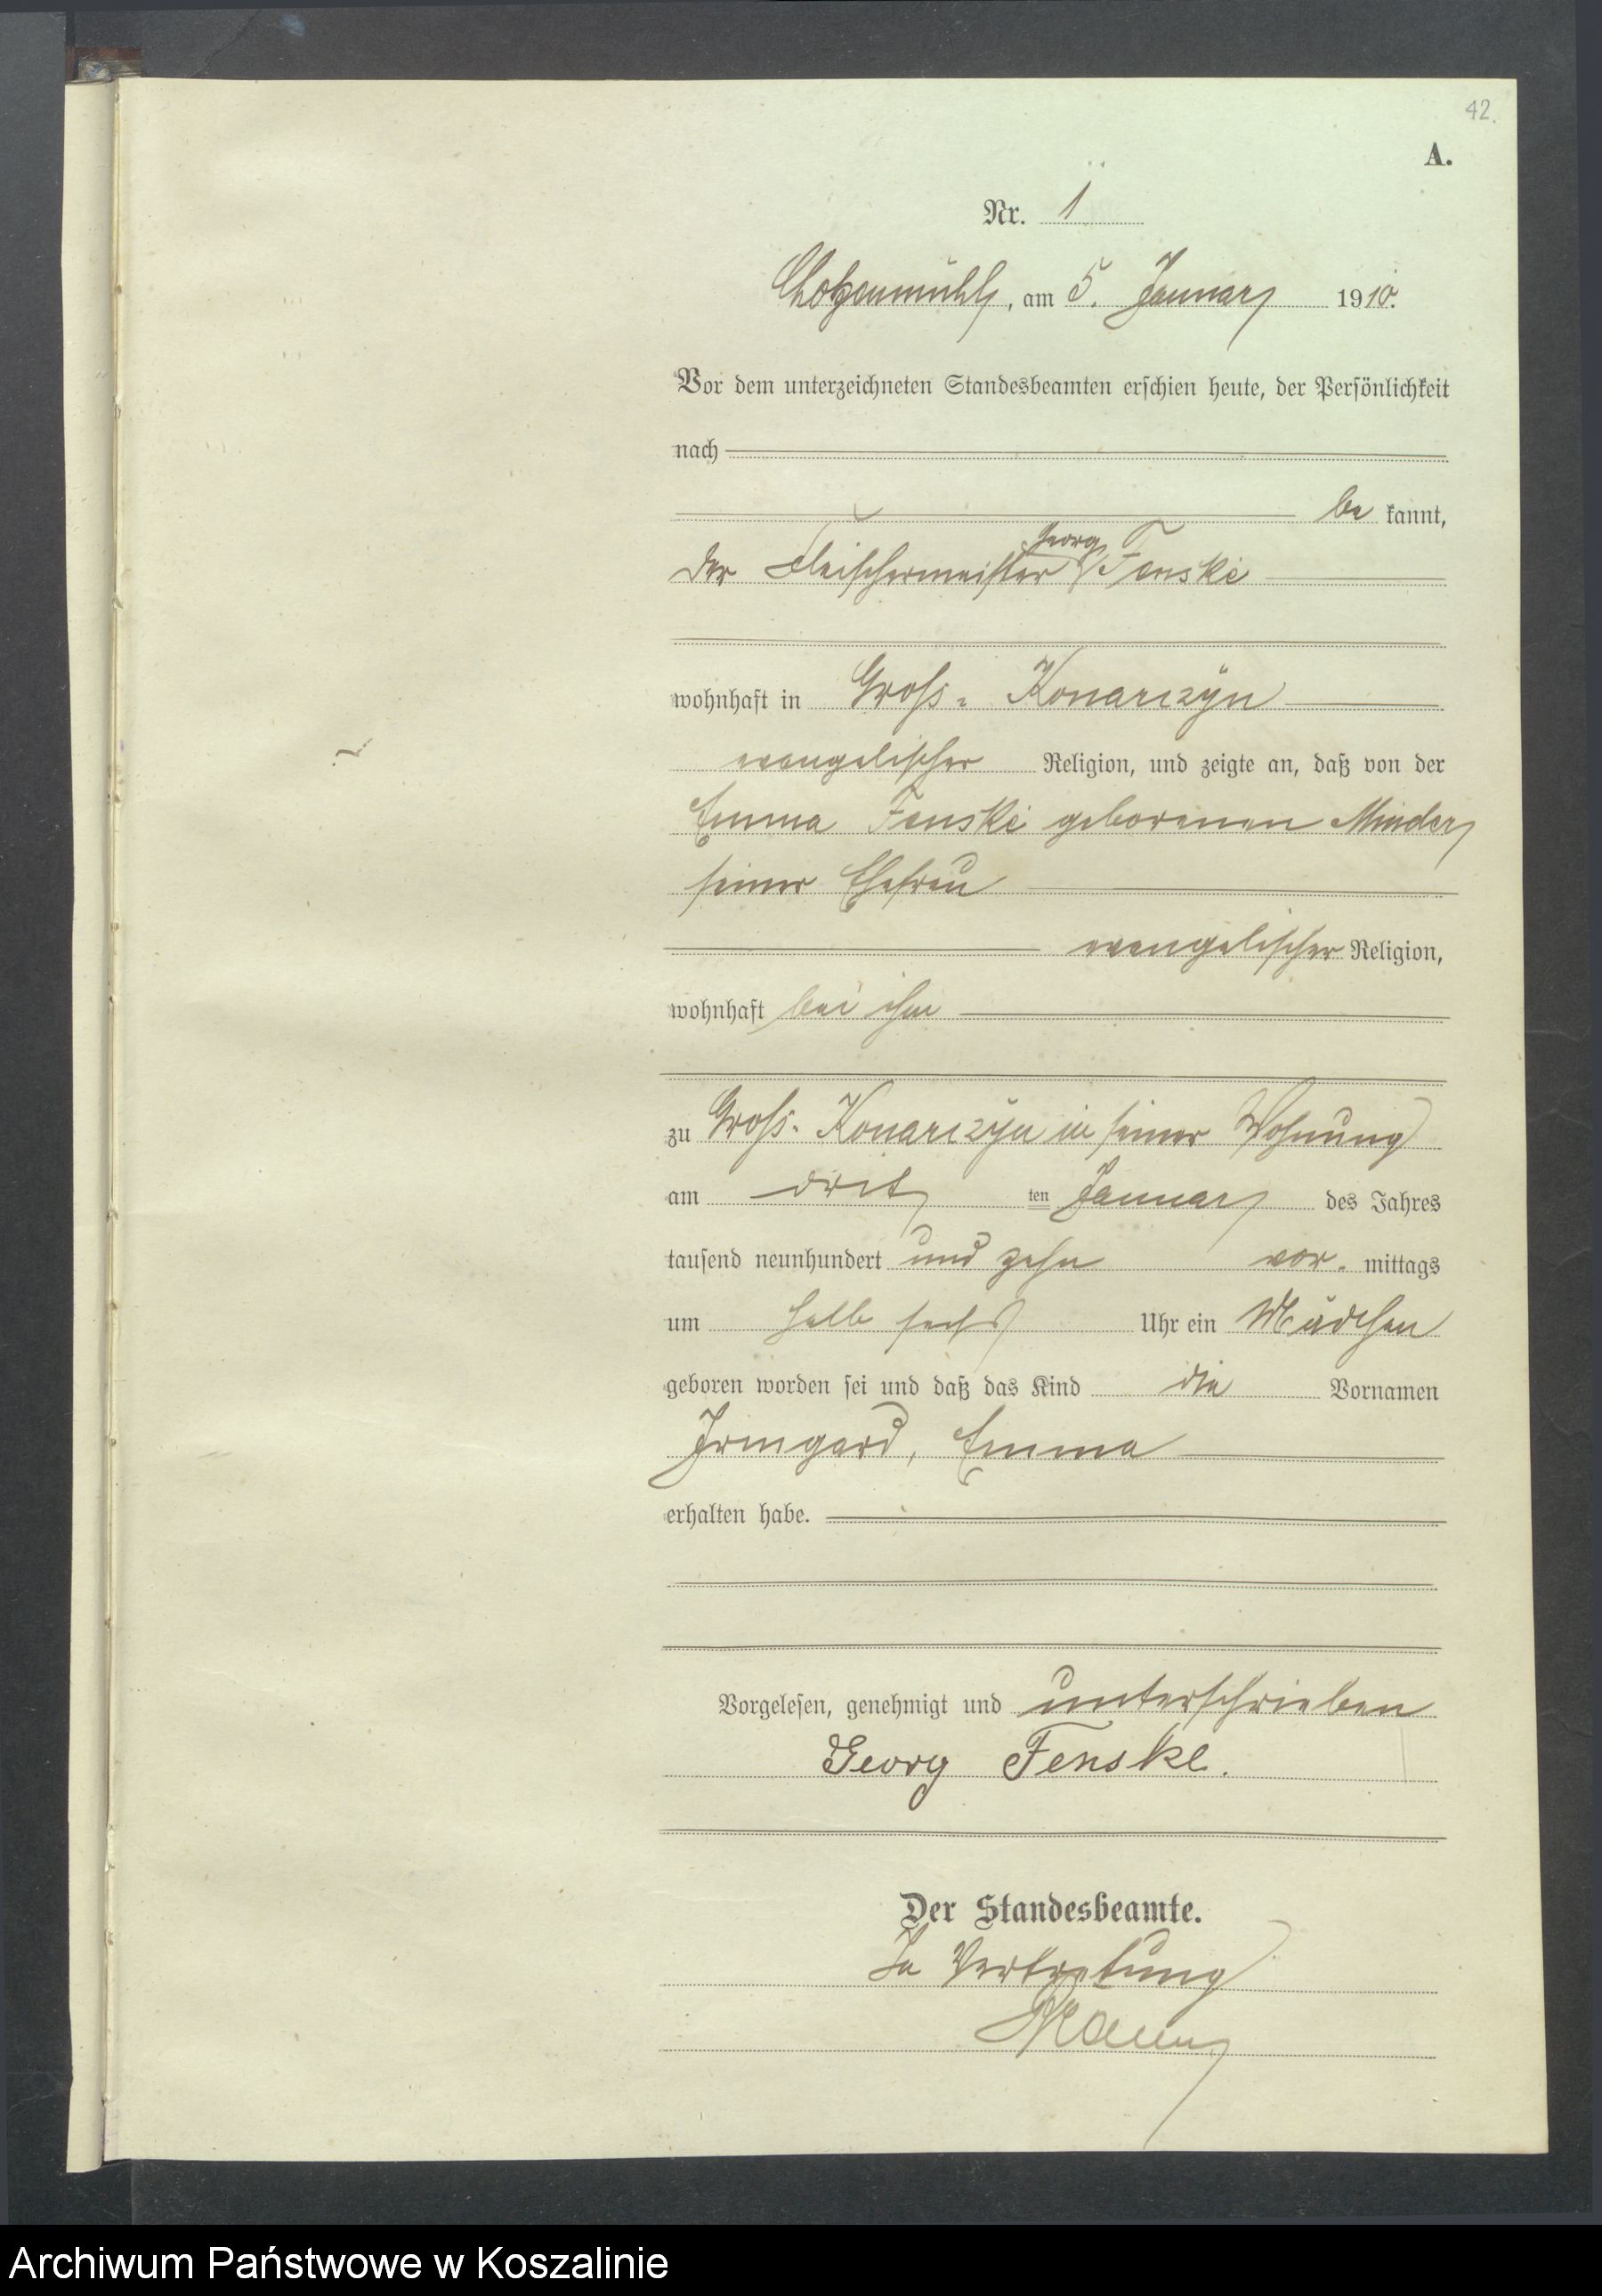 42.
A.
Nr. 1
Chotzenmühl, am 5. Januar 1910.
Vor dem unterzeichneten Standesbeamten erschien heute, der Persönlichkeit
nach
be kannt,
Georg
der Fleischermeister Fenske
wohnhaft in Gross-Konarczyn
evangelischer Religion, und zeigte an, daß von der
Emma Fenske geborenen Minder,
seiner Ehefrau
evangelischer Religion,
wohnhaft bei ihm
zu Gross-Konarczyn in seiner Wohnung
am drit ten Januar des Jahres
tausend neunhundert und zehn vor-mittags
um halb sechs Uhr ein Mädchen
geboren worden sei und daß das Kind die Vornamen
Irmgard, Emma
erhalten habe.
Vorgelesen, genehmigt und unterschrieben
Georg Fenske.
Der Standesbeamte.
In Vertretung
Archiwum Państwowe w Koszalinie